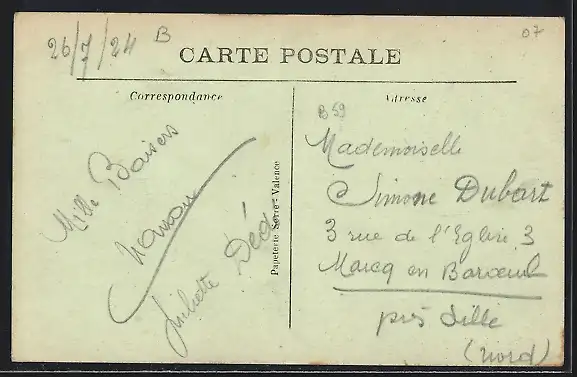 26/7/24
B
07
CARTE POSTALE
Correspondance
Adresse
B 59
Mille Baisers
Juliette Déd
Papeterie Serre - Valence
Mademoiselle
Simone Dubart
3 rue de l'Eglise 3
Marcq en Baroeul
près Lille
(Nord)